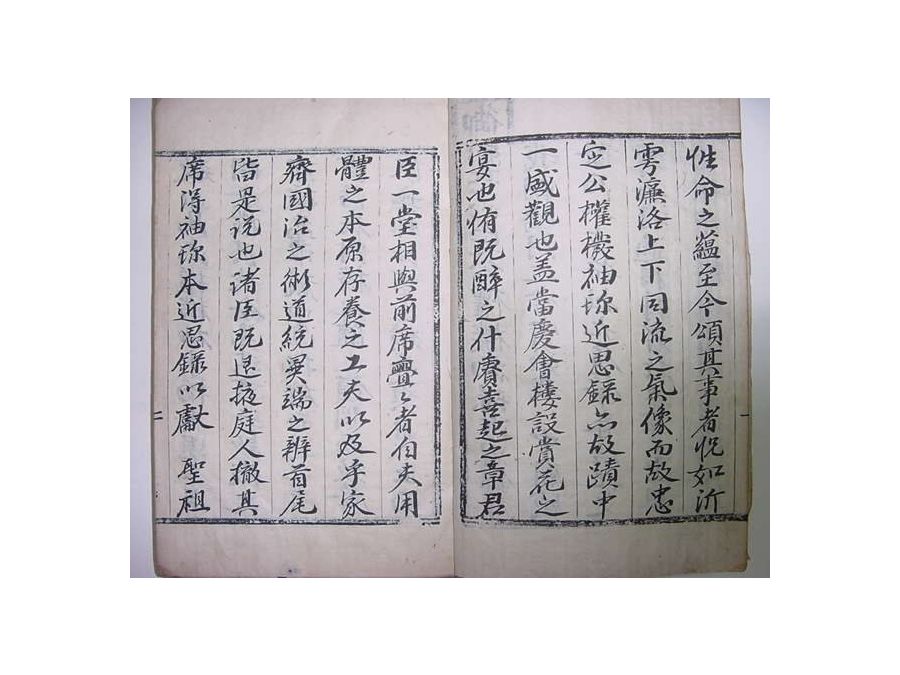 性命之蘊至今頌其事者怳如沂
雩濂洛上下同流之氣像而故忠
定公權橃袖珍近思錄亦故蹟中
一盛觀也盖當慶會樓設賞花之
宴也侑既醉之什賡喜起之章君
臣一堂相與前席亹〻者伯夫用
體之本原存養之工夫以及乎家
齊國治之術道統異端之辨首尾
皆是說也諸臣既退掖庭人撤其
席得袖珍本近思錄以獻 聖祖